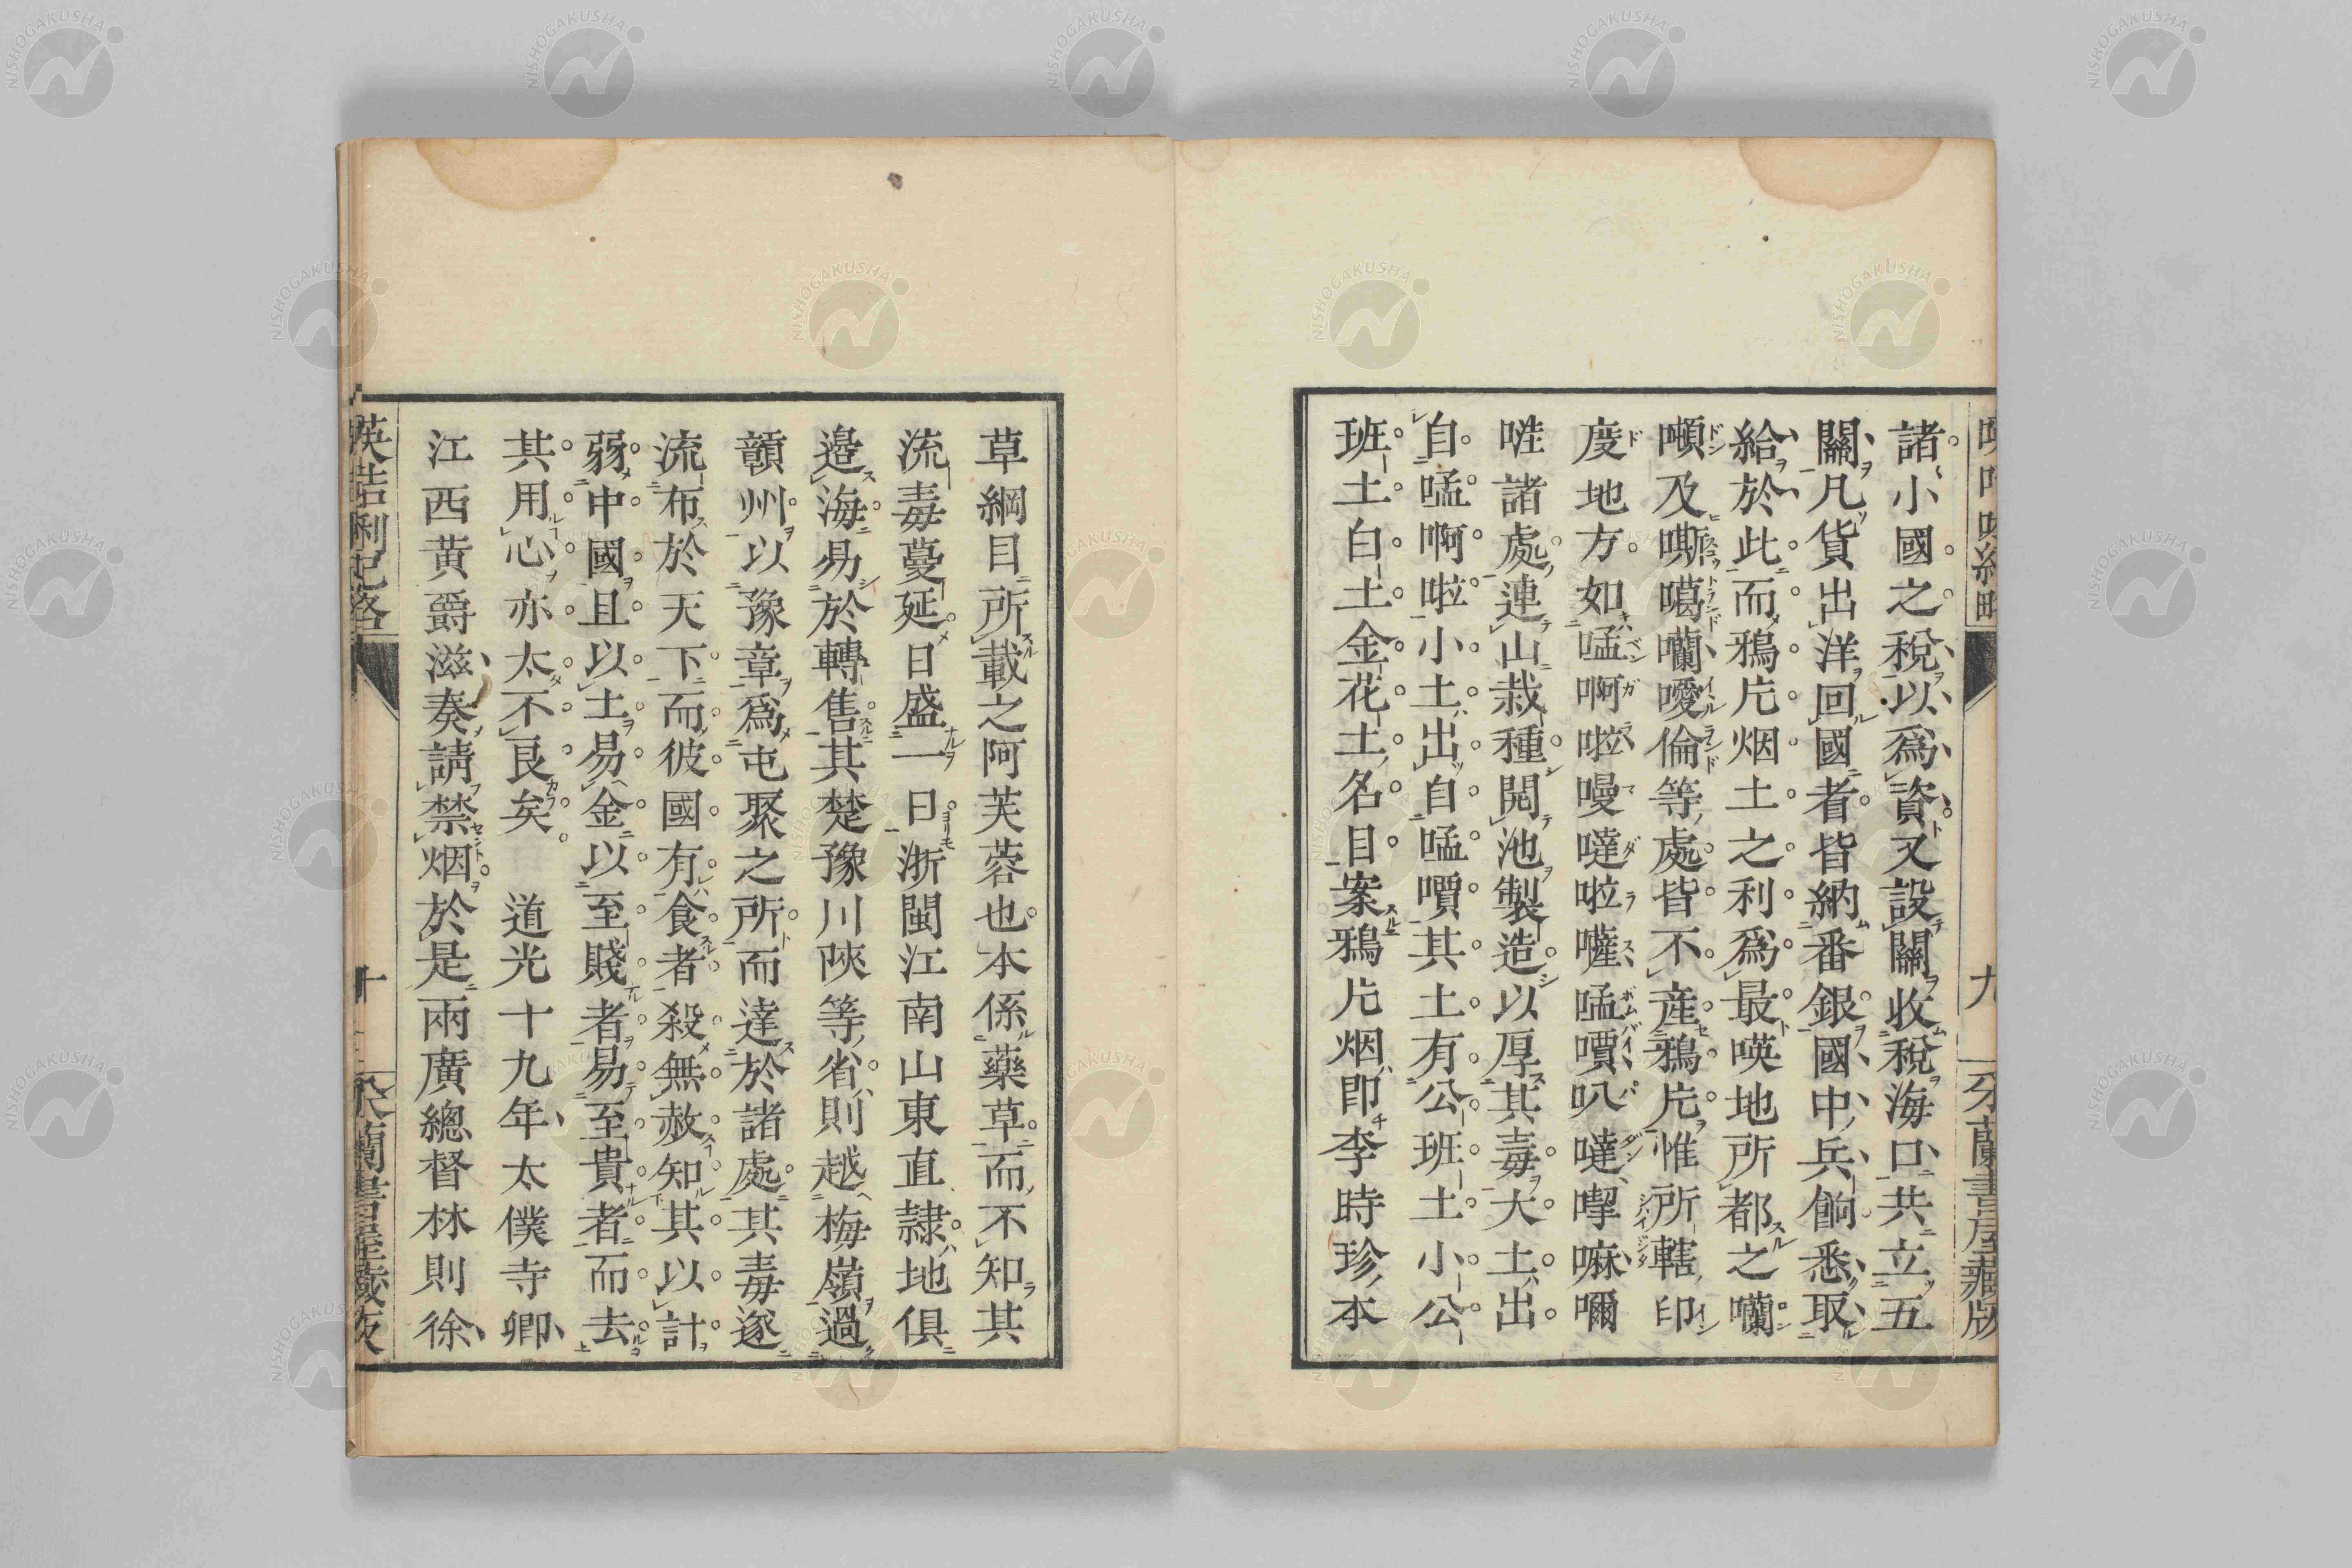 諸小國之稅以爲資又設關收稅海口共立五
關凡貨出洋回國者皆納番銀國中兵餉悉取
給於此而鴉片烟土之利爲最暎地所都之囒
噸及嘶噶囒噯倫等處皆不產鴉片惟所轄印
度地方如嗑啊啦嘜噠啦嚾嗑嘪叭噠㗉嘛嚹
㗌諸處連山栽種閱池製造以厚其毒大土出
自嗑啊啦小土出自嗑嘪其土有公班土小公
班土白土金花土名目案鴉片烟即李時珍本
草綱目所載之阿芙蓉也本係藥草而不知其
流毒蔓延日盛一日浙閩江南山東直隸地俱
邉海易於轉售其楚豫川陝等省則越梅嶺過
贛州以豫章爲屯聚之所而達於諸處其毒遂
流布於天下而彼國有食者殺無赦知其以計
弱中國且以土易金以至賤者易至貴者而去
其用心亦太不良矣　道光十九年太僕寺卿
江西黃爵滋奏請禁烟於是兩廣總督林則徐
九
蘭書屋藏版
暎咭唎記略
十
NISHOGAKUSHA